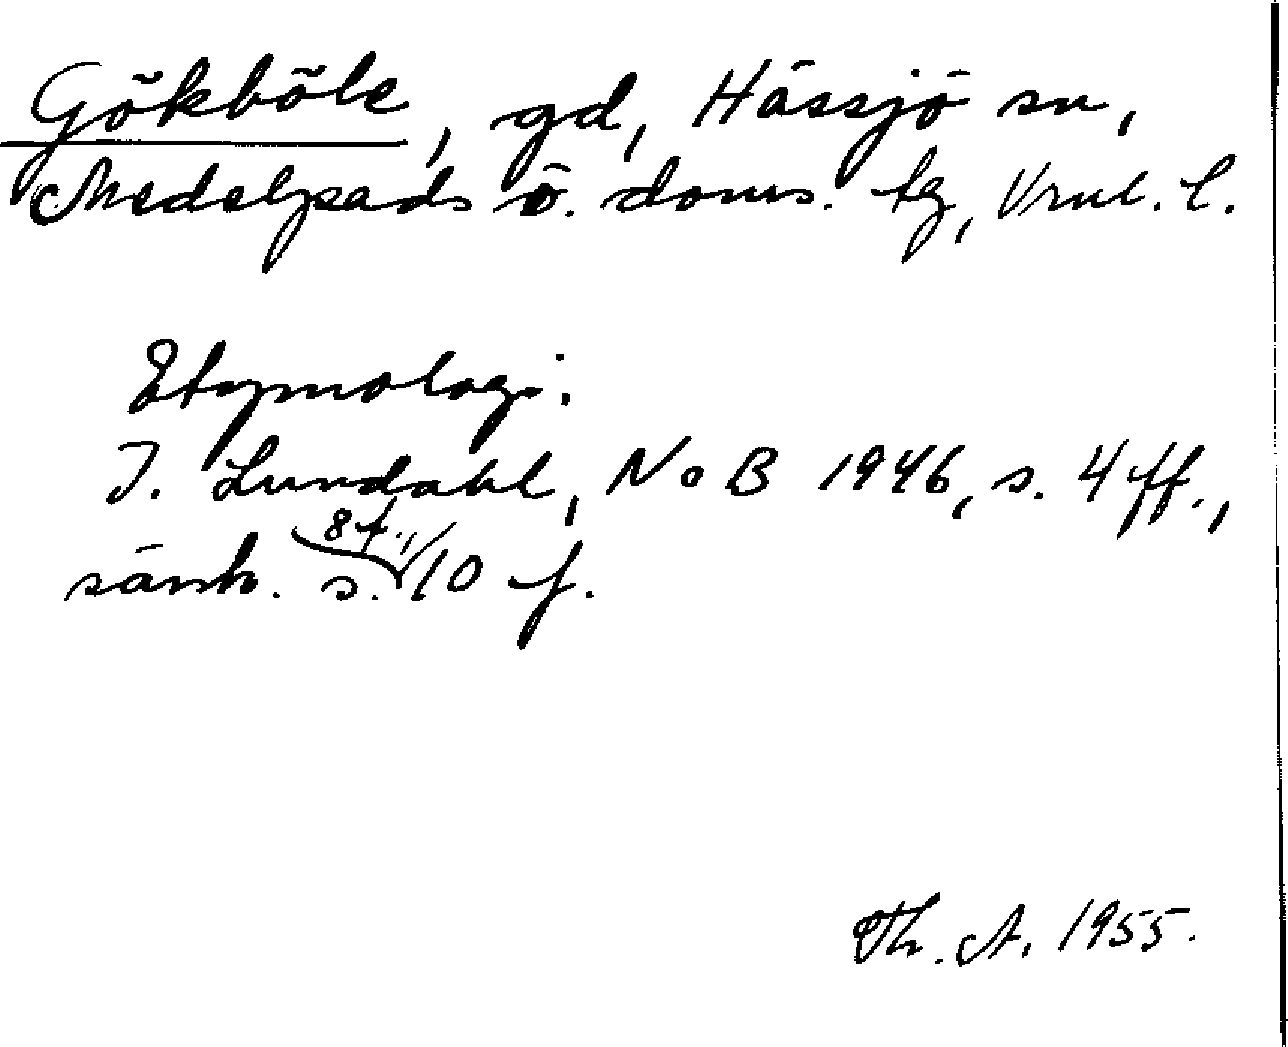 Gökböle, gd, Hässjö sn,
Medelpads ö. doms. tg, Vrnl. l.
Etymologi.
I. Lundahl, NoB 1946, s. 4 ff.,
särsk. s. 8 f., 10 f.
Th. A. 1955.